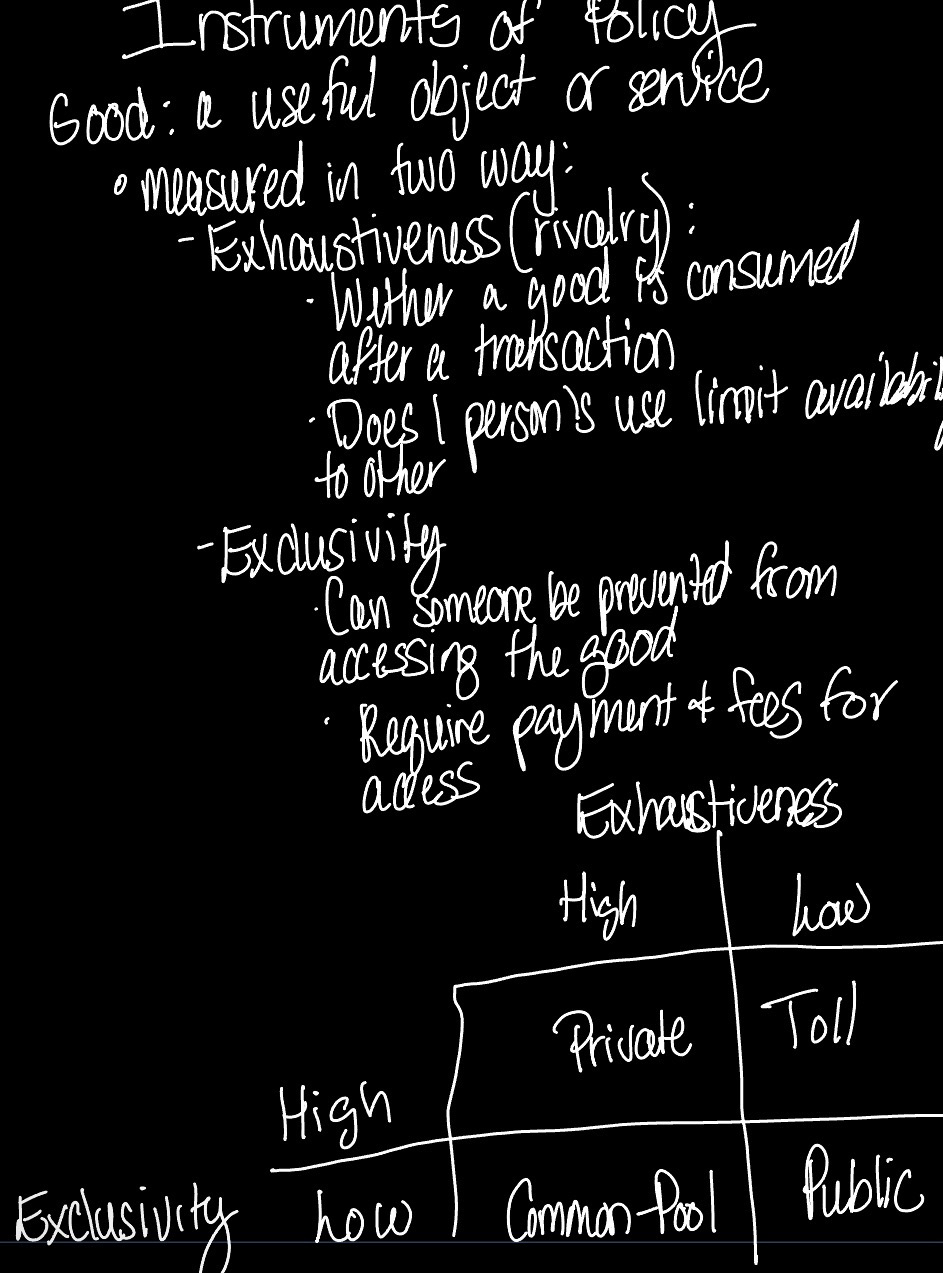 Instruments of Policy
Good: a useful object or service
• measured in two way:
- Exhaustiveness (rivalry):
· Wether a good is consumed
after a transaction
· Does 1 person's use limit availabili
to other
- Exclusivity
· Can someone be prevented from
accessing the good
· Require payment & fees for
access
Exhaustiveness
High Low
Private Toll
High
Exclusivity Low Common-Pool Public